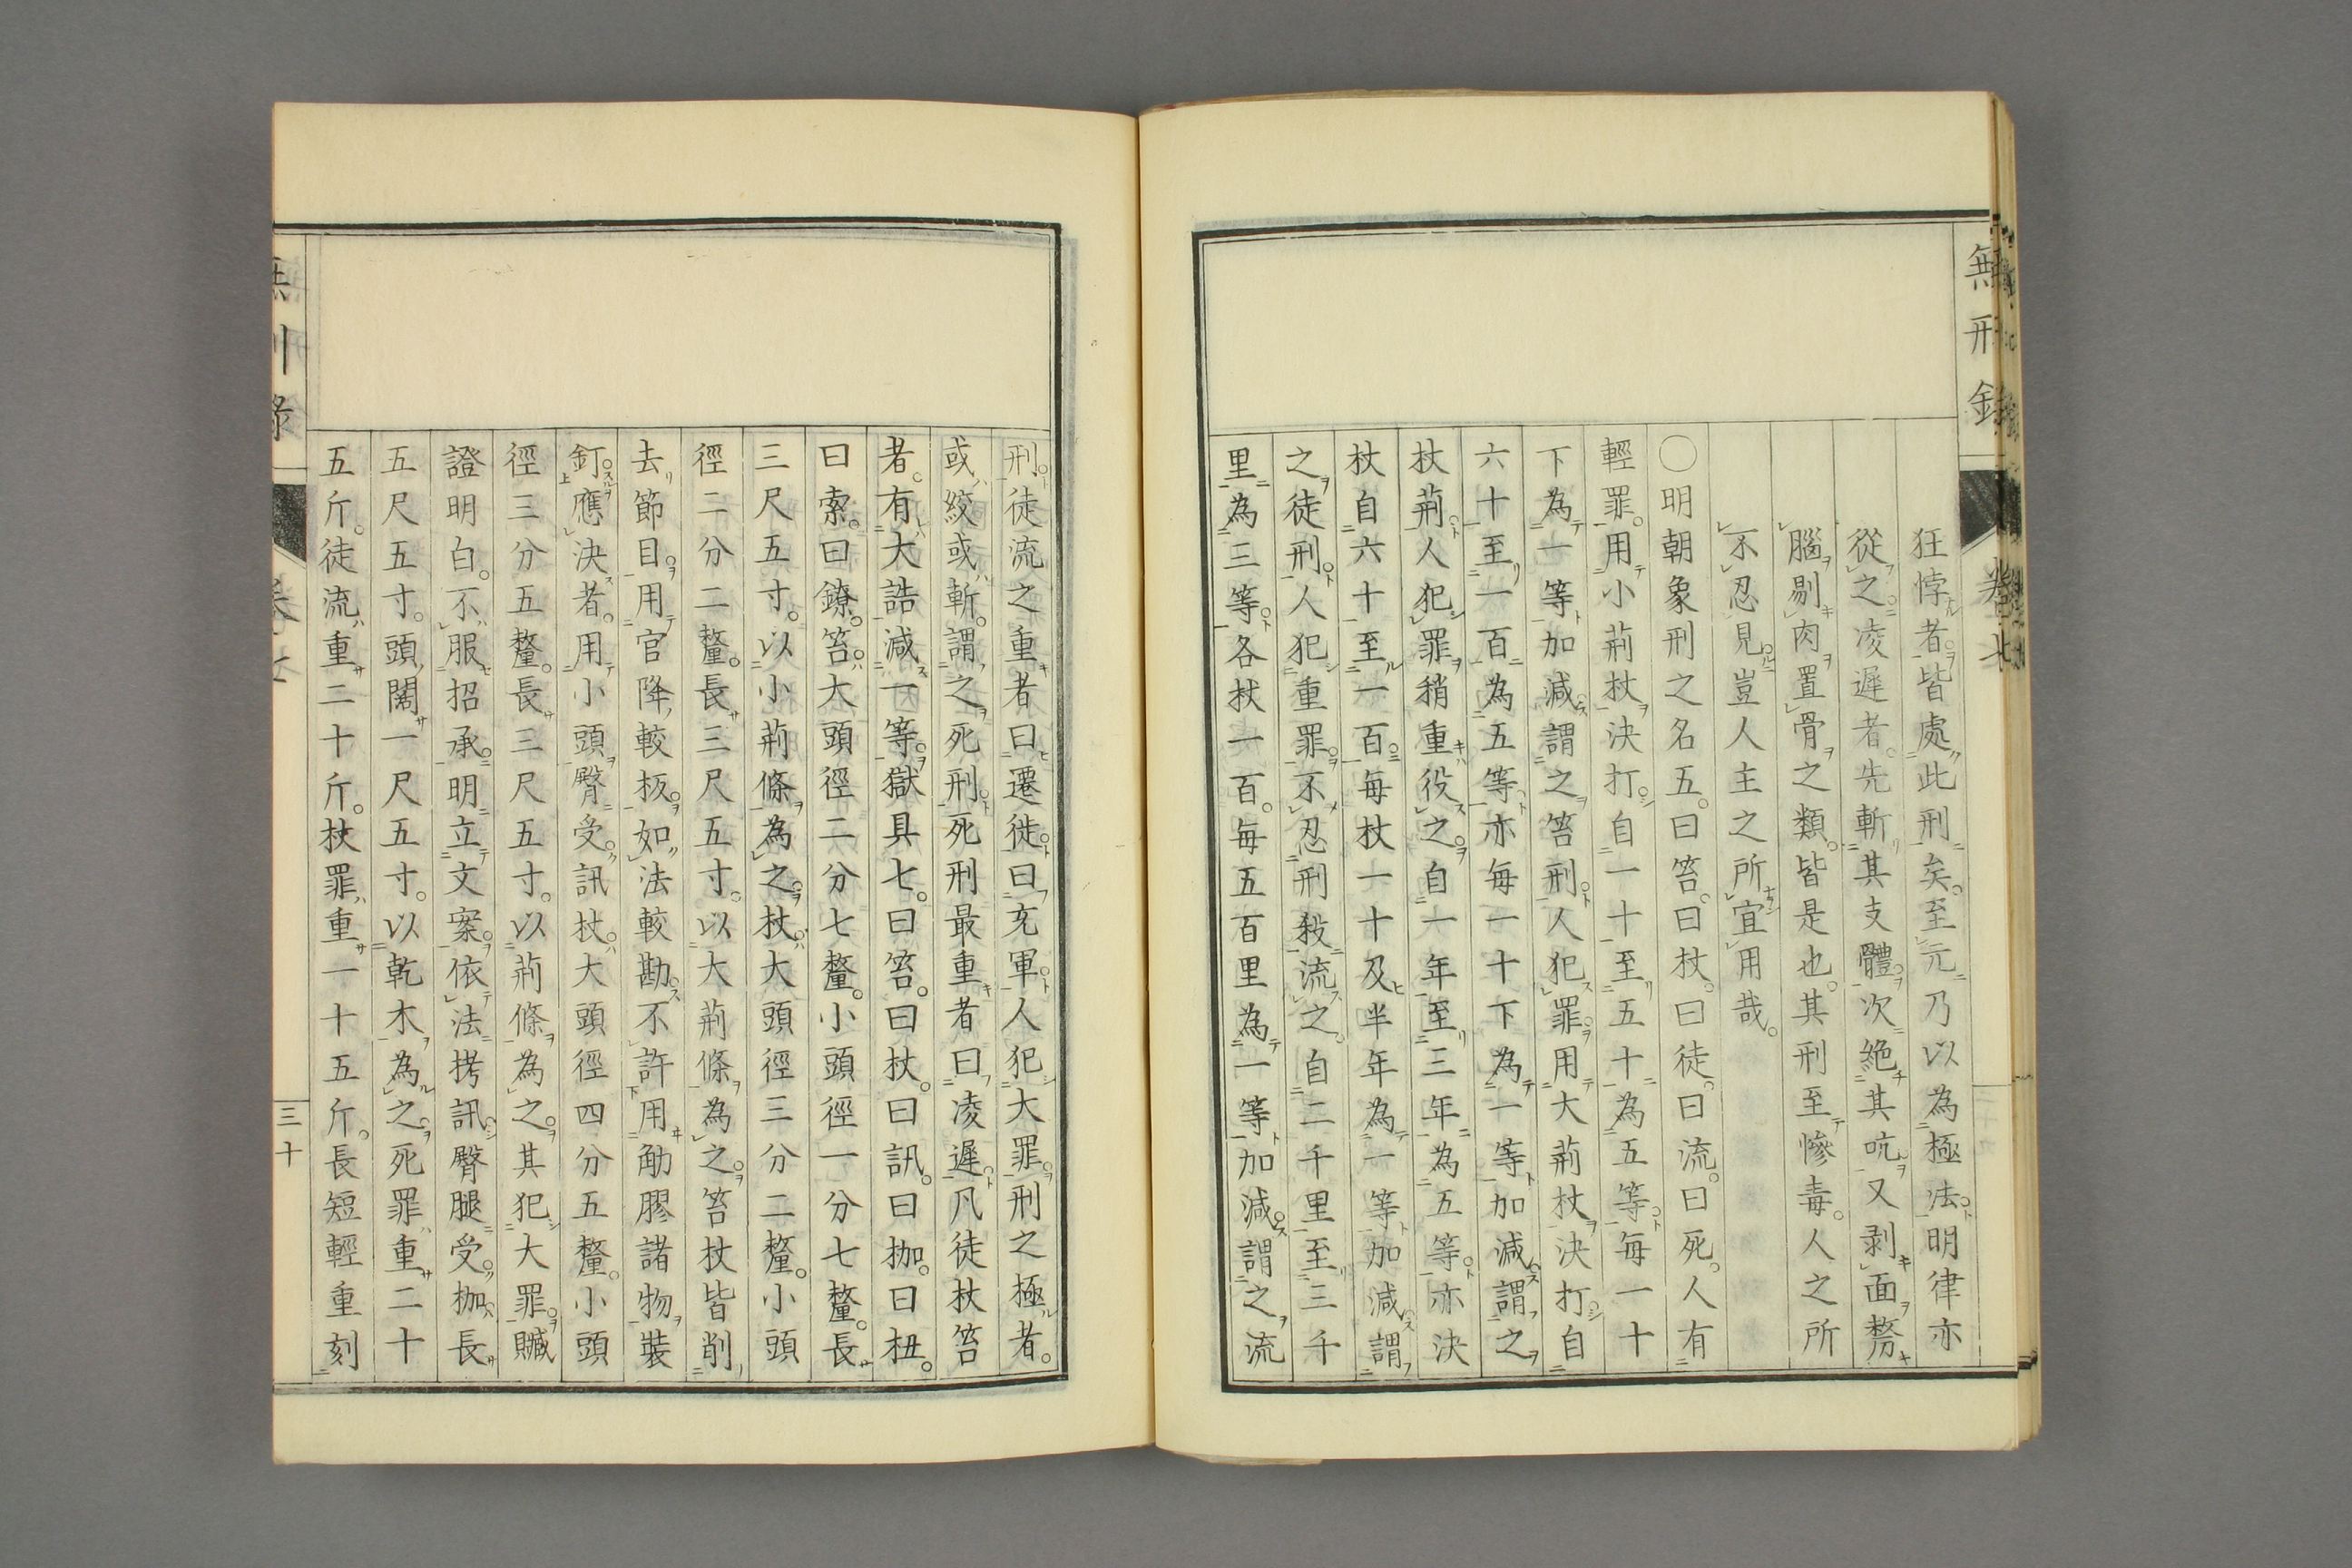 無刑錄
卷十七
狂悖者。皆處此刑矣。至元乃以為極法。明律亦
從之。凌遲者。先斬其支體。次絕其吭。又剥面剺
腦剔肉置骨之類。皆是也。其刑至慘毒。人之所
不忍見。豈人主之所宜用哉。
〇明朝象刑之名五。曰笞。曰杖。曰徒。曰流。曰死。人有
輕罪。用小荊杖決打。自一十至五十為五等。每一十
下為一等加減。謂之笞刑。人犯罪。用大荊杖決打。自
六十至一百為五等。亦每一十下為一等加減。謂之
杖荊。人犯罪稍重役之。自一年至三年為五等。亦決
杖自六十至一百。每杖一十及半年為一等加減。謂
之徒刑。人犯重罪。不忍刑殺流之。自二千里至三千
里為三等。各杖一百。每五百里為一等加減。謂之流
刑。徒流之重者曰遷徙。曰充軍。人犯大罪。刑之極者。
或絞或斬。謂之死刑。死刑最重者曰凌遲。凡徒杖笞
者。有大誥減一等。獄具七。曰笞。曰杖。曰訊。曰枷。曰杻。
曰索。曰鐐。笞。大頭徑二分七釐。小頭徑一分七釐。長
三尺五寸。以小荊條為之。杖。大頭徑三分二釐。小頭
徑二分二釐。長三尺五寸。以大荊條為之。笞杖皆削
去節目。用官降較板。如法較勘。不許用觔膠諸物裝
釘。應決者。用小頭臀受。訊杖。大頭徑四分五釐。小頭
徑三分五釐。長三尺五寸。以荊條為之。其犯大罪。贓
證明白。不服招承。明立文案。依法拷訊。臀腿受。枷。長
五尺五寸。頭闊一尺五寸。以乾木為之。死罪重二十
五斤。徒流重二十斤。杖罪重一十五斤。長短輕重刻
三十